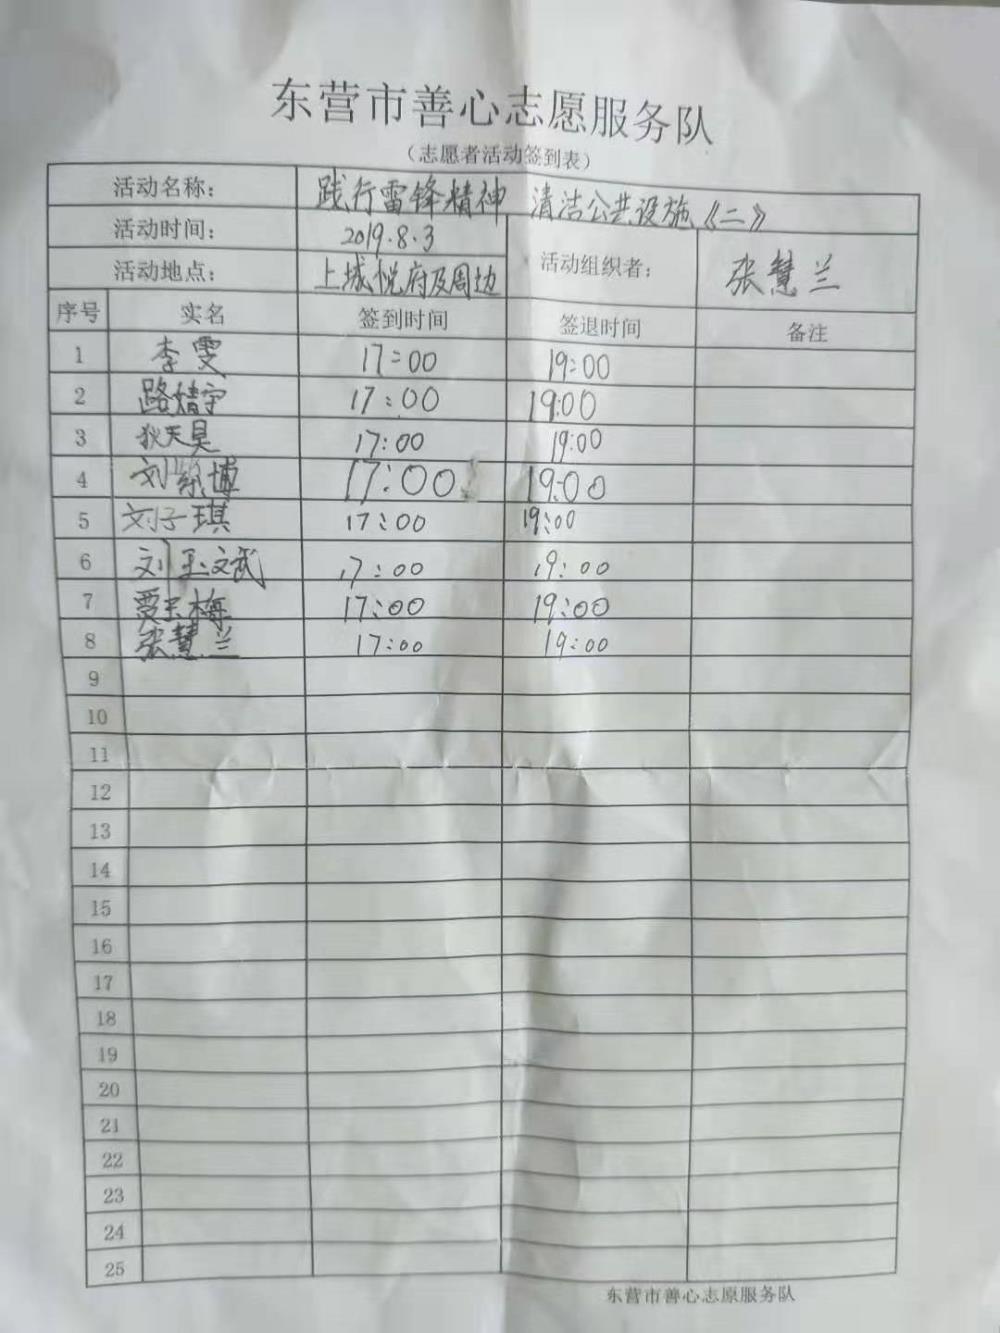 东营市善心志愿服务队
（志愿者活动签到表）
活动名称： 践行雷锋精神 清洁公共设施《二》
活动时间： 2019.8.3
活动地点： 上城悦府及周边 活动组织者： 张慧兰
序号 实名 签到时间 签退时间 备注
1 李雯 17:00 19:00
2 路婧宇 17:00 19:00
3 狄天昊 17:00 19:00
4 刘 博 17:00 19:00
5 刘子琪 17:00 19:00
6 刘玉文武 17:00 19:00
7 贾玉梅 17:00 19:00
8 张慧兰 17:00 19:00
9
10
11
12
13
14
15
16
17
18
19
20
21
22
23
24
25
东营市善心志原服务队